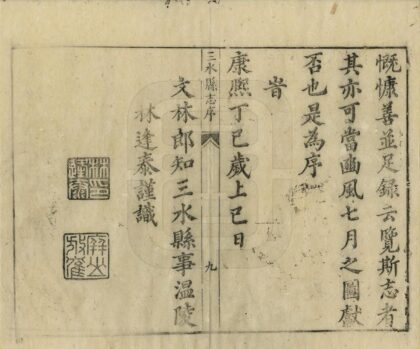 慨慷善並足錄云覽斯志者
其亦可當豳風七月之圖獻
否也是為序
旹
康熈丁巳歲上巳日
三水縣志序
九
文林郎知三水縣事温陵
林逢泰謹識